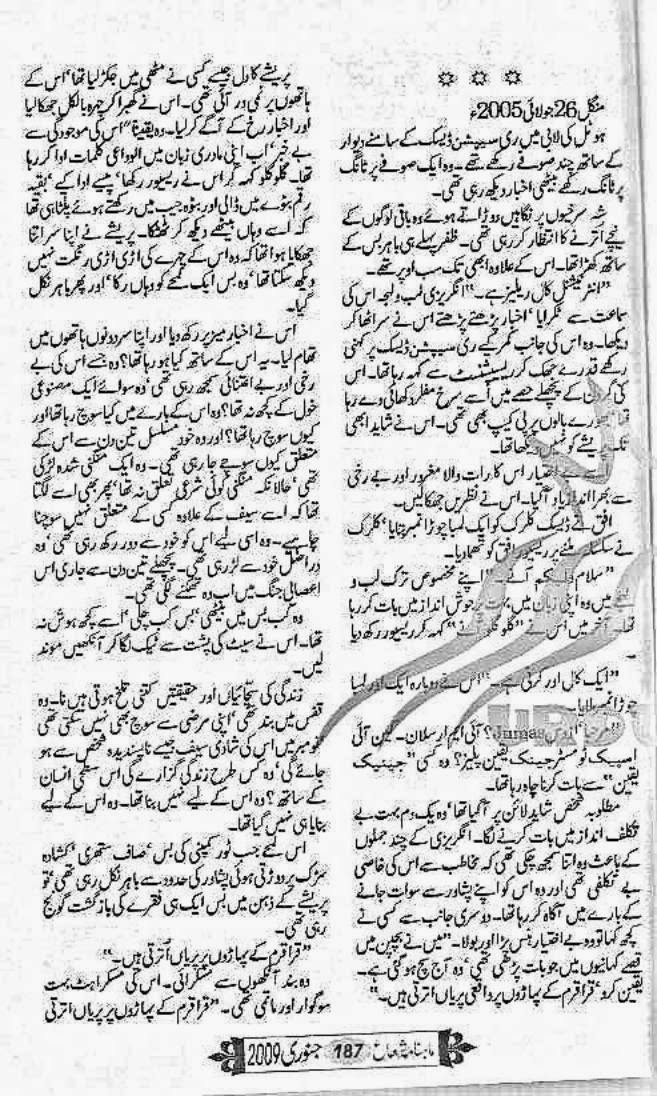 منگل 26 جولائی 2005ء
ہوٹل کی لابی میں ری سیپشن ڈیسک کے سامنے دیوار
کے ساتھ چند صوفے رکھے تھے۔ وہ ایک صوفے پر ٹانگ
پر ٹانگ رکھے بیٹھی اخبار دیکھ رہی تھی۔
شہ سرخیوں پر نگاہیں دوڑاتے ہوئے وہ باقی لوگوں کے
نیچے اترنے کا انتظار کر رہی تھی۔ ظفر پہلے ہی باہر بس کے
ساتھ کھڑا تھا۔ اس کے علاوہ ابھی تک سب اوپر تھے۔
"انٹرنیشنل کال ریلیز ہے۔" انگریزی لب و لہجہ اس کی
سماعت سے ٹکرایا' اخبار پڑھتے پڑھتے اس نے سر اٹھا کر
دیکھا۔ وہ اس کی جانب کمر کیے ری سیپشن ڈیسک پر کہنی
رکھے قدرے جھک کر ریسپشنسٹ سے کہہ رہا تھا۔ اس
کی گردن کے پچھلے حصے میں اسے سرخ مفلر دکھائی دے رہا
تھا' بھورے بالوں پر پی کیپ بھی تھی۔ اس نے شاید ابھی
تک پریشے کو نہیں دیکھا تھا۔
اختیار اس کا رات والا مغرور اور بے رخی
سے بھرا انداز یاد آگیا۔ اس نے نظریں جھکالیں۔
افق نے ڈیسک کلرک کو ایک لمبا چوڑا نمبر بتایا' کلرک
نے سلسلہ ملنے پر ریسیور افق کو تھما دیا۔
"سلام اپنے مخصوص ترک لب و
لہجے میں وہ اپنی زبان میں بہت پرجوش انداز میں بات کر رہا
تھا۔ آخر میں اس نے "گلو گلو کہہ کر ریسیور رکھ دیا
۔
"ایک کال اور کرنی ہے۔" اس نے دوبارہ ایک اور لمبا
چوڑا نمبر ملایا۔
"مرحبا' آئی ایم ارسلان۔ کین آئی
اسپیک ٹو مسٹر جینک یقین پلیز؟ وہ کسی "جینیک
یقین" سے بات کرنا چاہ رہا تھا۔
مطلوبہ شخص شاید لائن پر آگیا تھا' وہ یک دم بہت بے
تکلف انداز میں بات کرنے لگا۔ انگریزی کے چند جملوں
کے باعث وہ اتنا سمجھ چکی تھی کہ مخاطب سے اس کی خاصی
بے تکلفی تھی اور وہ اس کو اپنے پشاور سے سوات جانے
کے بارے میں آگاہ کر رہا تھا۔ دوسری جانب سے کسی نے
کچھ کہا تو وہ بے اختیار ہنس پڑا اور بولا۔ "میں نے بچپن میں
قصے کہانیوں میں جو بات پڑھی تھی' وہ آج سچ ہو گئی ہے۔
یقین کرو' قراقرم کے پہاڑوں پر واقعی پریاں اترتی ہیں۔"
پریشے کا دل جیسے کسی نے مٹھی میں جکڑ لیا تھا' اس کے
ہاتھوں پر نمی در آئی تھی۔ اس نے گھبرا کر چہرہ بالکل جھکا لیا
اور اخبار رخ کے آگے کر لیا۔ وہ یقیناً "اس کی موجودگی سے
بے خبر' اب اپنی مادری زبان میں الوداعی کلمات ادا کر رہا
تھا۔ گلو گلو کہہ کر اس نے ریسیور رکھا' پیسے ادا کیے' بقیہ
رقم بٹوے میں ڈالی اور بٹوہ جیب میں رکھتے ہوئے پلٹا ہی تھا
کہ اسے وہاں بیٹھے دیکھ کر ٹھٹکا۔ پریشے نے اپنا سر اتنا
جھکایا ہوا تھا کہ وہ اس کے چہرے کی اڑی اڑی رنگت نہیں
دیکھ سکتا تھا' وہ بس ایک لمحے کو وہاں رکا' اور پھر باہر نکل
گیا۔
اس نے اخبار میز پر رکھ دیا اور اپنا سر دونوں ہاتھوں میں
تھام لیا۔ یہ اس کے ساتھ کیا ہو رہا تھا؟ وہ جسے اس کی بے
رخی اور بے اعتنائی سمجھ رہی تھی' وہ سوائے ایک مصنوعی
خول کے کچھ نہ تھا؟ وہ اس کے بارے میں کیا سوچ رہا تھا اور
کیوں سوچ رہا تھا؟ اور وہ خود مسلسل تین دن سے اس کے
متعلق کیوں سوچے جا رہی تھی۔ وہ ایک منگنی شدہ لڑکی
تھی' حالانکہ منگنی کوئی شرعی تعلق نہ تھا' پھر بھی اسے لگتا
تھا کہ اسے سیف کے علاوہ کسی کے متعلق نہیں سوچنا
چاہیے۔ وہ اسی لیے اس کو خود سے دور رکھ رہی تھی' وہ
دراصل خود سے لڑ رہی تھی۔ پچھلے تین دن سے جاری اس
اعصابی جنگ میں اب وہ تھکنے لگی تھی۔
وہ کب بس میں بیٹھی' بس کب چلی' اسے کچھ ہوش نہ
تھا۔ اس نے سیٹ کی پشت سے ٹیک لگا کر آنکھیں موند
لیں۔
زندگی کی سچائیاں اور حقیقتیں کتنی تلخ ہوتی ہیں نا۔ وہ
قفس میں بند تھی' اپنی مرضی سے سوچ بھی نہیں سکتی تھی
نومبر میں اس کی شادی سیف جیسے ناپسندیدہ شخص سے ہو
جائے گی' وہ کس طرح زندگی گزارے گی اس سطحی انسان
کے ساتھ؟ وہ اس کے لیے نہیں بنا تھا۔ وہ اس کے لیے
بنایا ہی نہیں گیا تھا۔
اس لمحے جب ٹور کمپنی کی بس' صاف ستھری' کشادہ
سڑک پر دوڑتی ہوئی پشاور کی حدود سے باہر نکل رہی تھی' تو
پریشے کے ذہن میں بس ایک ہی فقرے کی بازگشت گونج
رہی تھی۔
"قراقرم کے پہاڑوں پر پریاں اترتی ہیں۔"
وہ بند آنکھوں سے مسکرائی۔ اس کی مسکراہٹ بہت
سوگوار اور ماتمی تھی۔ "قراقرم کے پہاڑوں پر پریاں اترتی
ماہنامہ شعاع 187 جنوری 2009